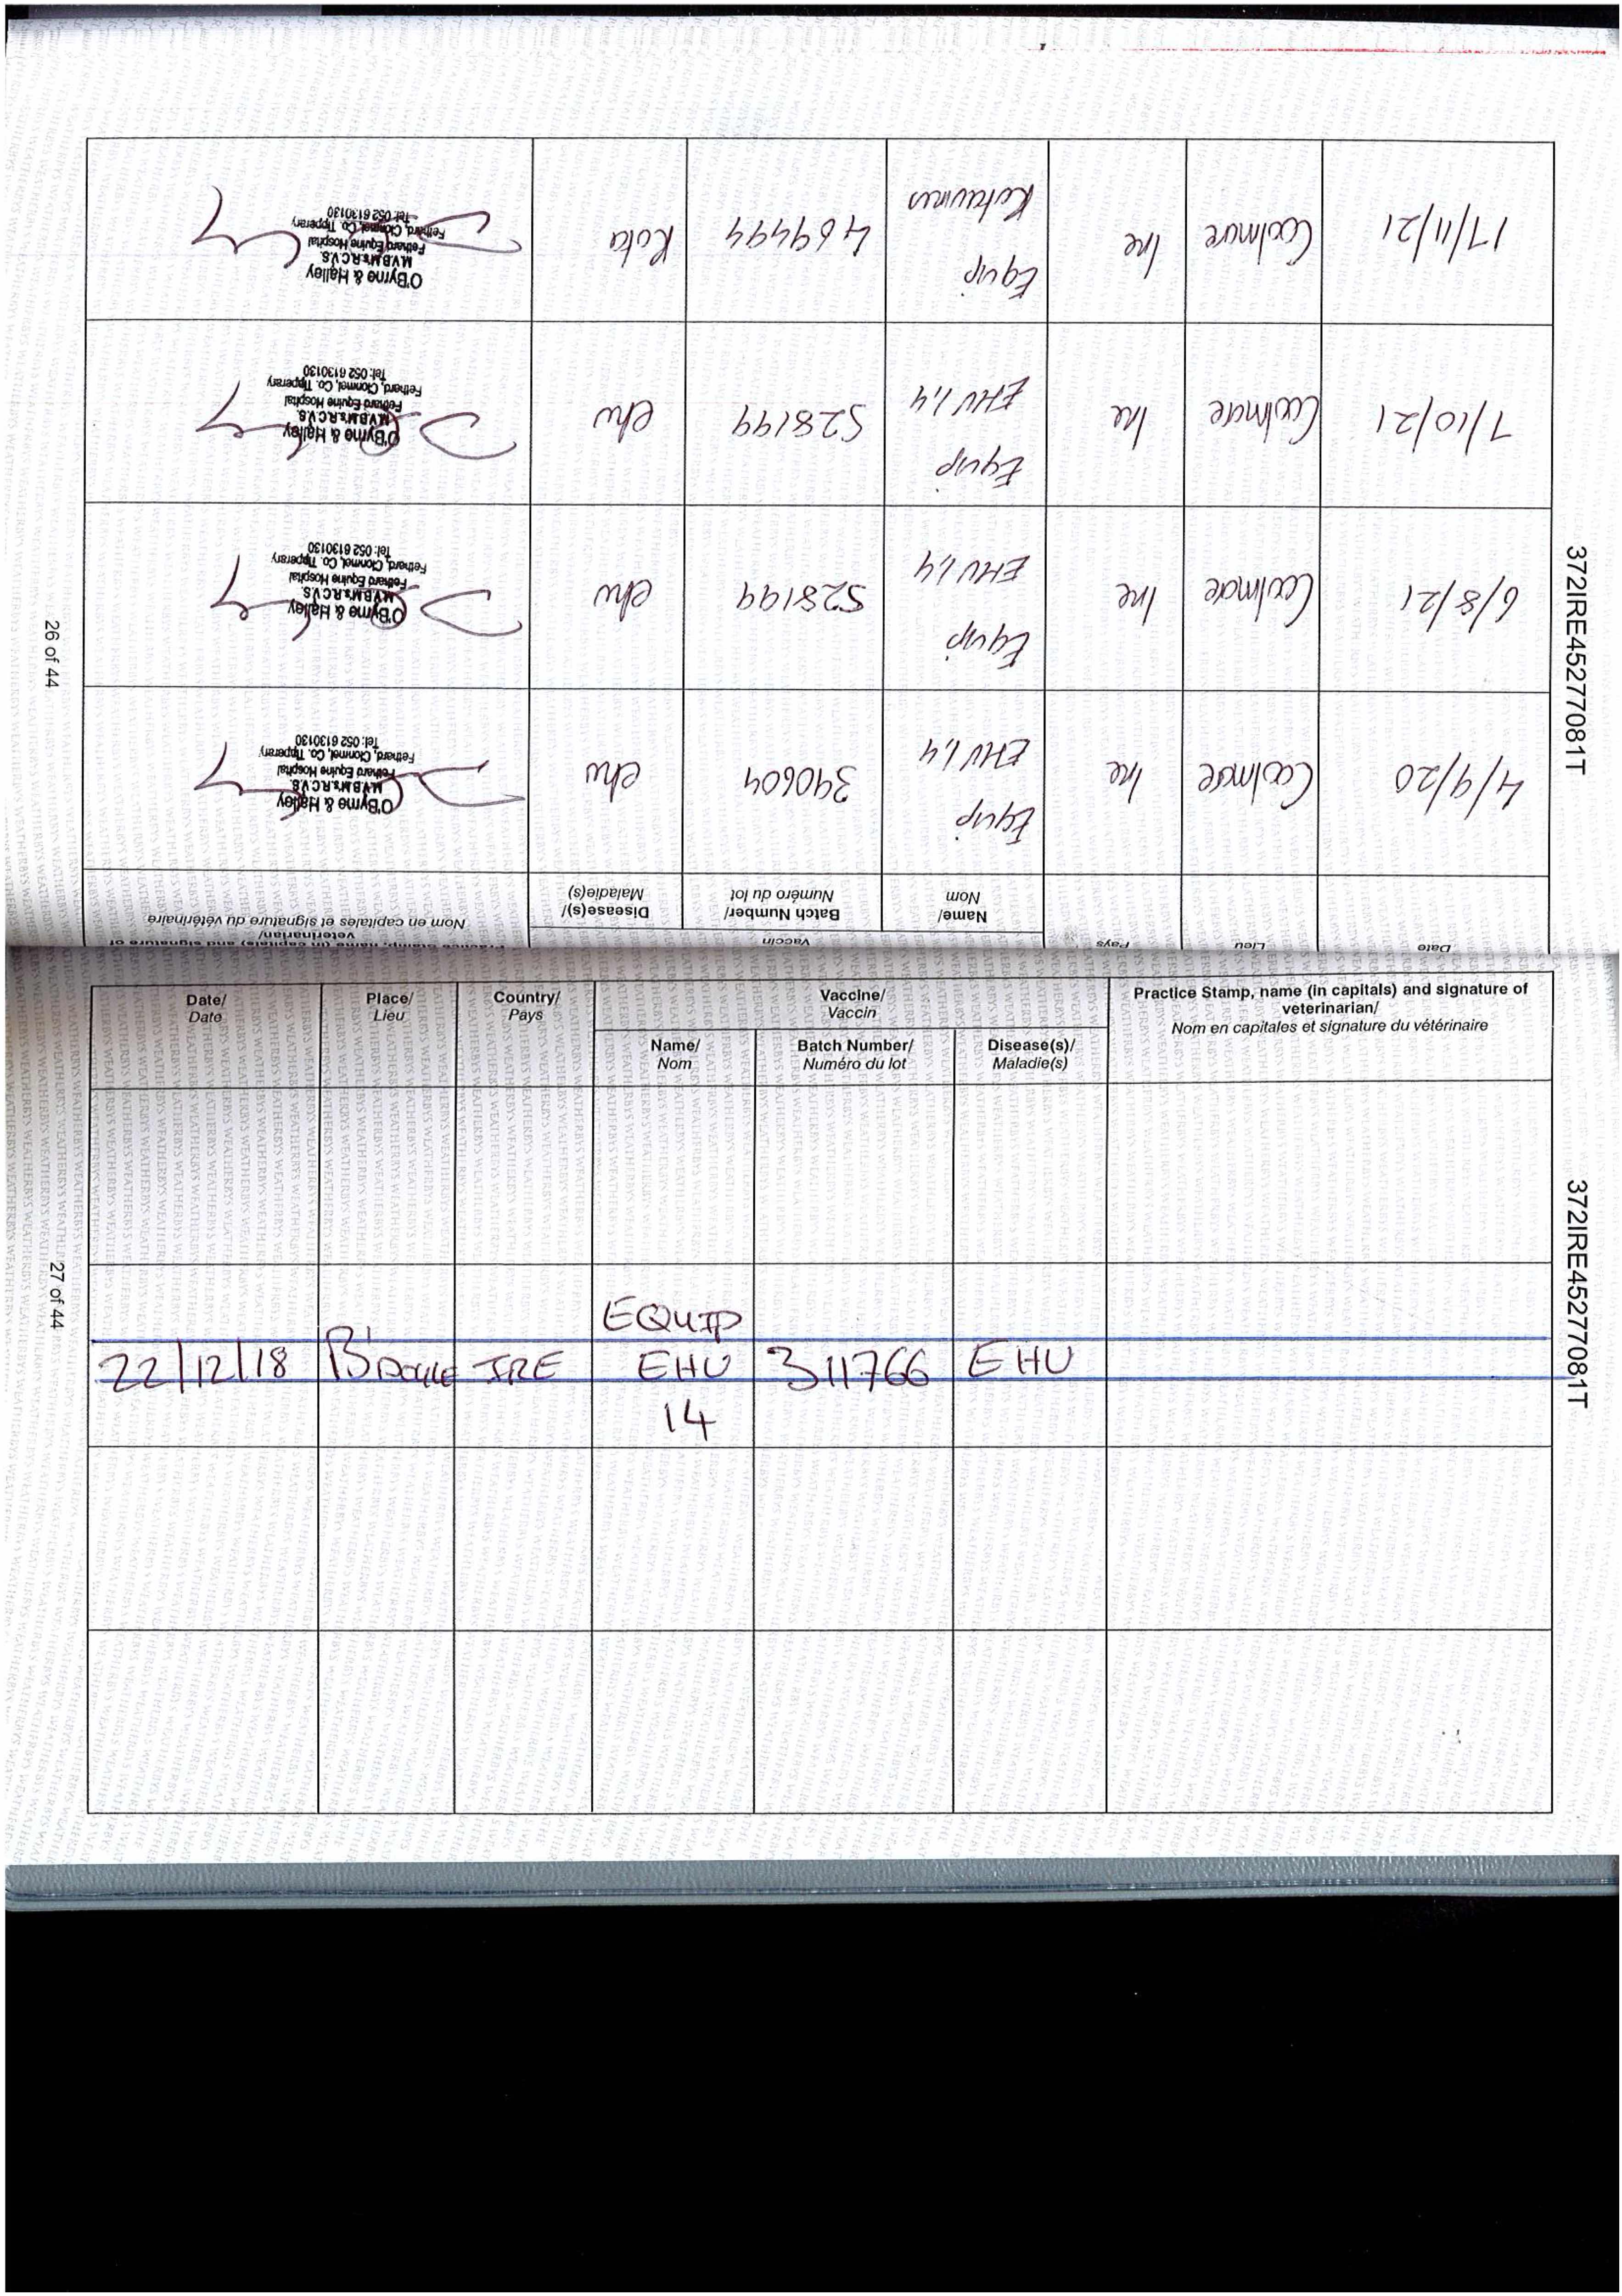 Date
Lieu
Pays
Vaccin
Practice Stamp, name (in capitals) and signature of
veterinarian/
Nom en capitales et signature du vétérinaire
Name/
Nom
Batch Number/
Numéro du lot
Disease(s)/
Maladie(s)
4/9/20 Coolmore Ire Equip
EHV 1,4
390604 ehv
O'Byrne & Halley
M.V.B.M's R.C.V.S.
Fethard Equine Hospital
Fethard, Clonmel, Co. Tipperary
Tel: 052 6130130
6/8/21 Coolmore Ire Equip
EHV 1,4
528199 ehv
O'Byrne & Halley
M.V.B.M's R.C.V.S.
Fethard Equine Hospital
Fethard, Clonmel, Co. Tipperary
Tel: 052 6130130
7/10/21 Coolmore Ire Equip
EHV 1,4
528199 ehv
O'Byrne & Halley
M.V.B.M's R.C.V.S.
Fethard Equine Hospital
Fethard, Clonmel, Co. Tipperary
Tel: 052 6130130
17/11/21 Coolmore Ire Equip
Rotavirus
469499 Rota
O'Byrne & Halley
M.V.B.M's R.C.V.S.
Fethard Equine Hospital
Fethard, Clonmel, Co. Tipperary
Tel: 052 6130130
26 of 44
372IRE45277081T
Date/
Date
Place/
Lieu
Country/
Pays
Vaccine/
Vaccin
Practice Stamp, name (in capitals) and signature of
veterinarian/
Nom en capitales et signature du vétérinaire
Name/
Nom
Batch Number/
Numéro du lot
Disease(s)/
Maladie(s)
EQUIP
22/12/18 B'DOYLE IRE EHV 311766 EHV
14
27 of 44
372IRE45277081T